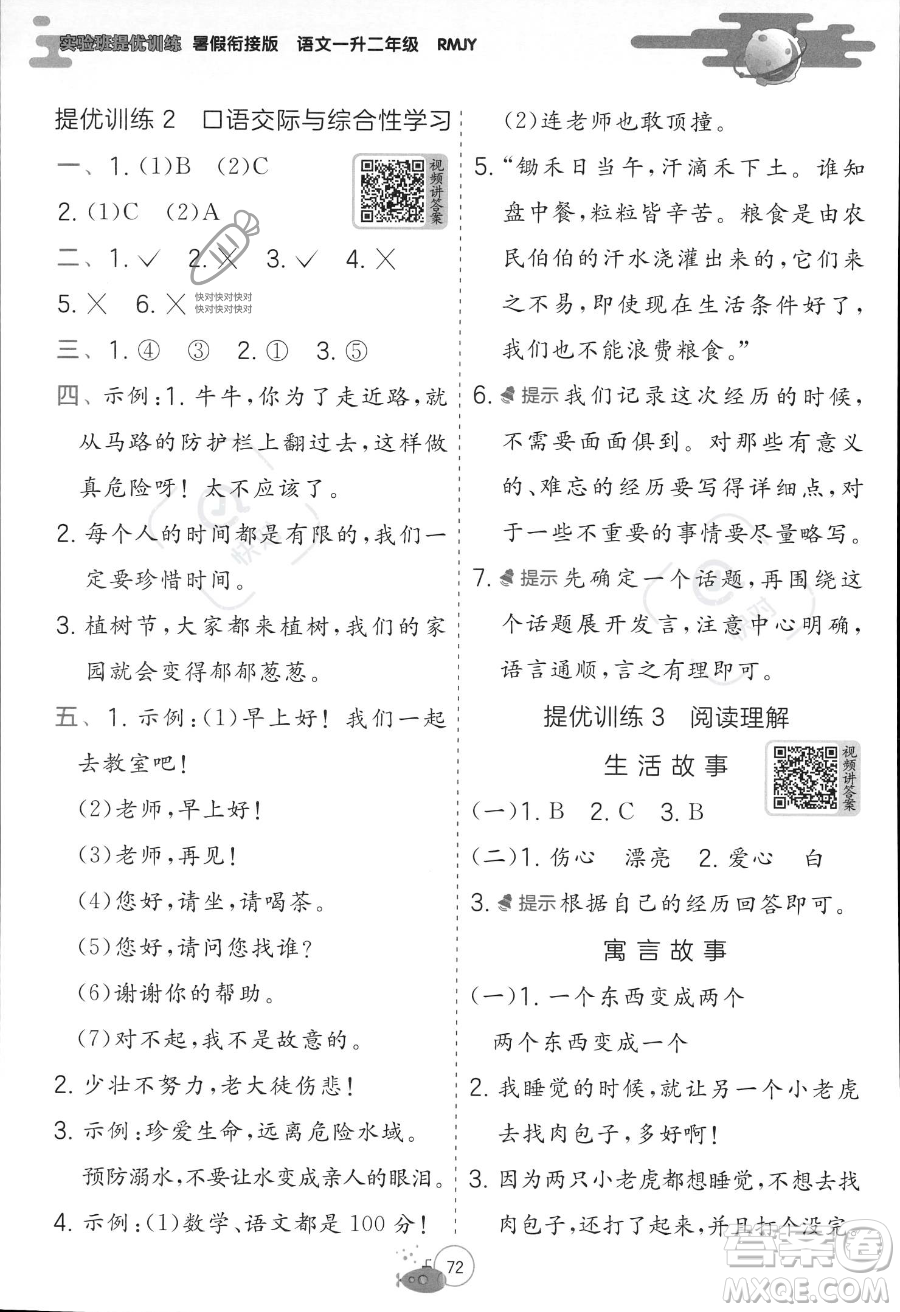 实验班提优训练 暑假衔接版 语文一升二年级 RMJY
提优训练 2 口语交际与综合性学习
一、1. (1)B (2)C
2. (1)C (2)A
视频讲答案
二、1. ✓ 2. ✕ 3. ✓ 4. ✕
5. ✕ 6. ✕
快对快对快对
快对快对快对
三、1. ④ ③ 2. ① 3. ⑤
四、示例:1. 牛牛,你为了走近路,就
从马路的防护栏上翻过去,这样做
真危险呀! 太不应该了。
2. 每个人的时间都是有限的,我们一
定要珍惜时间。
3. 植树节,大家都来植树,我们的家
园就会变得郁郁葱葱。
五、1. 示例:(1)早上好! 我们一起
去教室吧!
(2)老师,早上好!
(3)老师,再见!
(4)您好,请坐,请喝茶。
(5)您好,请问您找谁?
(6)谢谢你的帮助。
(7)对不起,我不是故意的。
2. 少壮不努力,老大徒伤悲!
3. 示例:珍爱生命,远离危险水域。
预防溺水,不要让水变成亲人的眼泪。
4. 示例:(1)数学、语文都是 100 分!
(2)连老师也敢顶撞。
5. “锄禾日当午,汗滴禾下土。谁知
盘中餐,粒粒皆辛苦。粮食是由农
民伯伯的汗水浇灌出来的,它们来
之不易,即使现在生活条件好了,
我们也不能浪费粮食。”
6. 提示 我们记录这次经历的时候,
不需要面面俱到。对那些有意义
的、难忘的经历要写得详细点,对
于一些不重要的事情要尽量略写。
7. 提示 先确定一个话题,再围绕这
个话题展开发言,注意中心明确,
语言通顺,言之有理即可。
提优训练 3 阅读理解
生活故事
视频讲答案
(一)1. B 2. C 3. B
(二)1. 伤心 漂亮 2. 爱心 白
3. 提示 根据自己的经历回答即可。
寓言故事
(一)1. 一个东西变成两个
两个东西变成一个
2. 我睡觉的时候,就让另一个小老虎
去找肉包子,多好啊!
3. 因为两只小老虎都想睡觉,不想找
肉包子,所以打了起来,并且打个没完。
72
答案圈
MXQE.COM